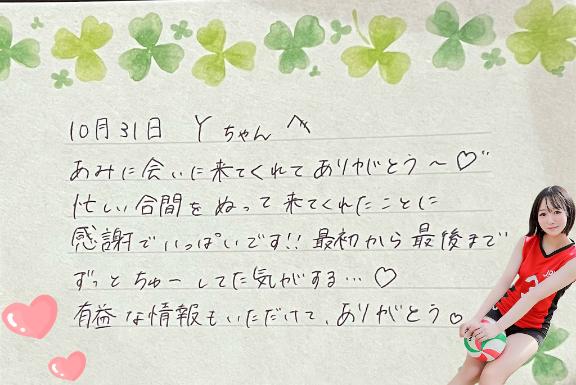 10月31日 Yちゃんへ
あみに会いに来てくれてありがとう〜♡
忙しい合間をぬって来てくれたことに
感謝でいっぱいです!! 最初から最後まで
ずっとちゅーしてた気がする…♡
有益な情報もいただけて、ありがとう♡